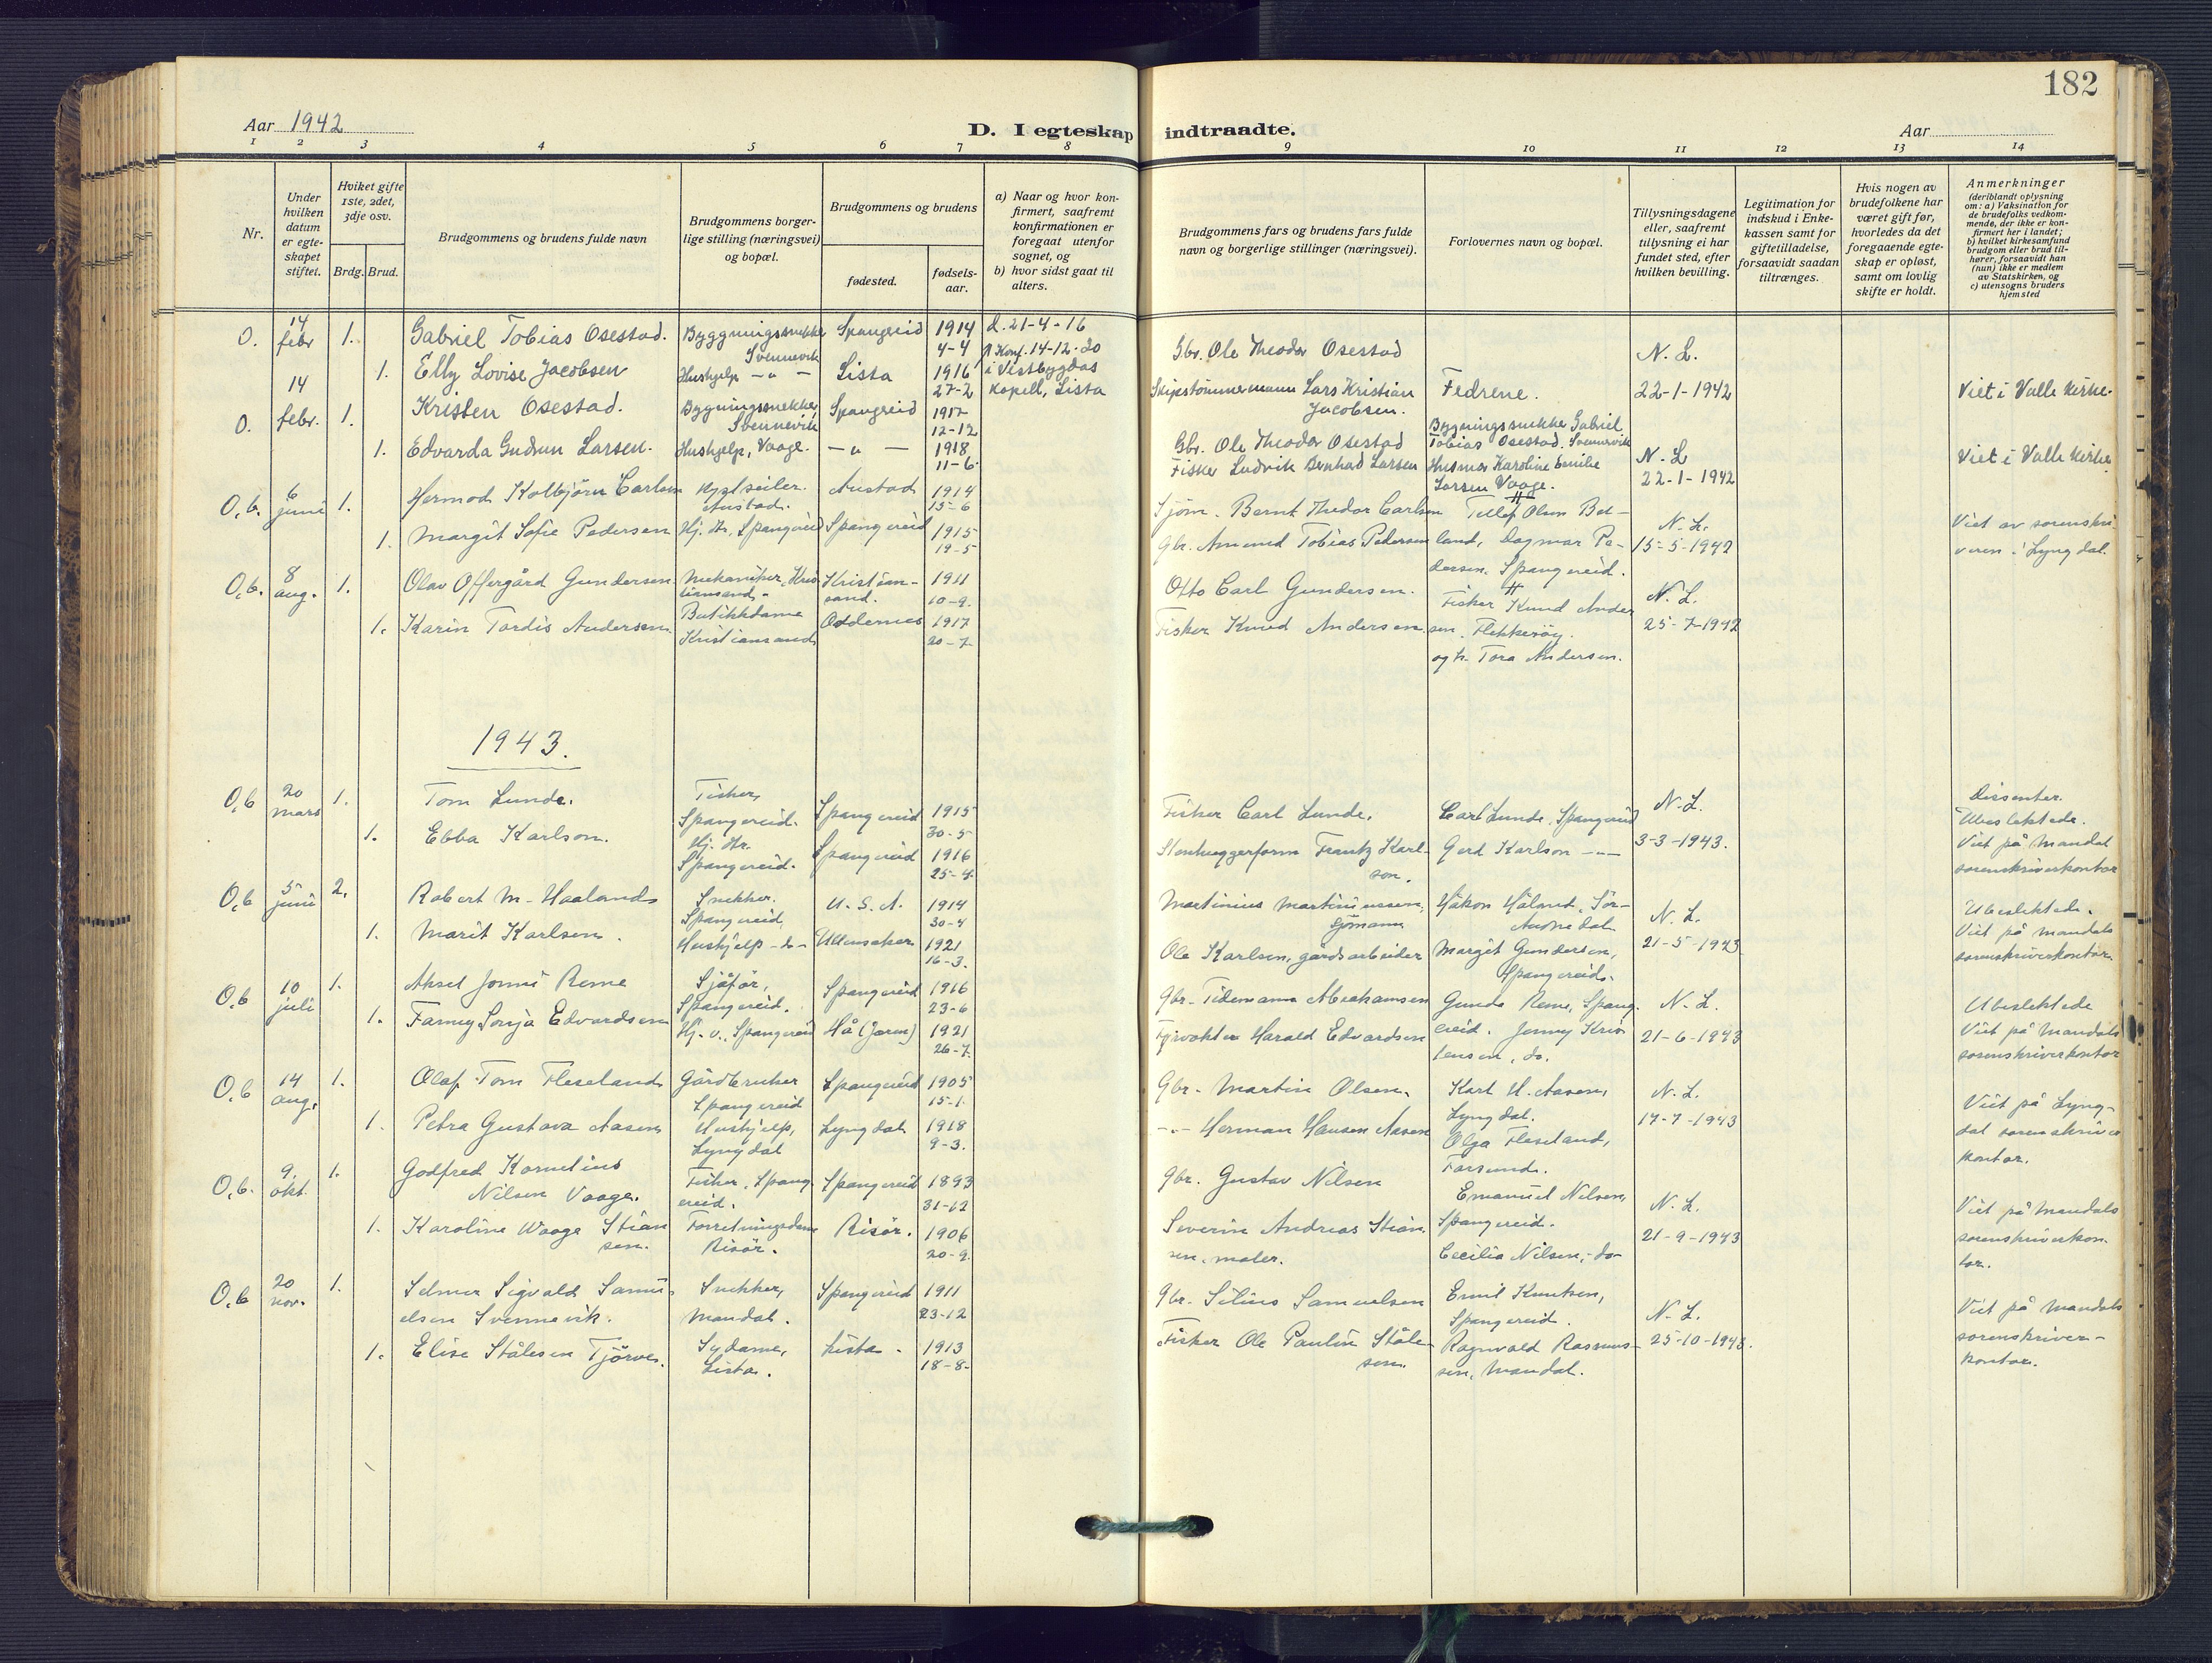 182
Aar 1942
D. I egteskap indtraadte.
Aar
1 2 3 4 5 6 7 8 9 10 11 12 13 14
Nr.
Under
hvilken
datum
er egte-
skapet
stiftet.
Hviket gifte
1ste, 2det,
3dje osv.
Brdg. Brud.
Brudgommens og brudens fulde navn
Brudgommens borger-
lige stilling (næringsvei)
og bopæl.
Brudgommens og brudens
fødested.
fødsels-
aar.
a) Naar og hvor kon-
firmert, saafremt
konfirmationen er
foregaat utenfor
sognet, og
b) hvor sidst gaat til
alters.
Brudgommens fars og brudens fars fulde
navn og borgerlige stillinger (næringsvei).
Forlovernes navn og bopæl.
Tillysningsdagene
eller, saafremt
tillysning ei har
fundet sted, efter
hvilken bevilling.
Legitimation for
indskud i Enke-
kassen samt for
giftetilladelse,
forsaavidt saadan
tiltrænges.
Hvis nogen av
brudefolkene har
været gift før,
hvorledes da det
foregaaende egte-
skap er opløst,
samt om lovlig
skifte er holdt.
Anmerkninger
(deriblandt oplysning
om: a) Vaksination for
de brudefolks vedkom-
mende, der ikke er kon-
firmert her i landet;
b) hvilket kirkesamfund
brudgom eller brud til-
hører, forsaavidt han
(hun) ikke er medlem
av Statskirken, og
c) utensogns bruders
hjemsted
O. 14 febr 1. Gabriel Tobias Osestad. Byggningssnekker Svennevik Spangereid 1914 4-4 d. 21-4-16
Gbr. Ole Theodor Osestad N. L.
1. Elly Lovise Jacobsen Hushjelp -"- Lista 1916 27-2 Konf. 14-12-30
i Vestbygdas
kapell, Lista
Skipstømmermann Lars Kristian
Jacobsen.
Fedrene. 22-1-1942 Viet i Valle kirke.
O. 14 febr. 1. Kristen Osestad. Bygningssnekker, Svennevik Spangereid 1917 12-12
Gbr. Ole Theodor Osestad
Bygningssnekker Gabriel
Tobias Osestad. Svennevik
N. L.
1. Edvarda Gudrun Larsen. Hushjelp, Vaage. -"- 1918 11-6
Fisker Ludvik Bernhard Larsen
Husmor Karoline Emilie
Larsen Vaage.
22-1-1942 Viet i Valle kirke.
O.b. 6 juni 1. Hermod Kolbjørn Carlsen Austad. Austad 1914 15-6
Sjøm. Bernt Thedor Carlsen
1. Margit Sofie Pedersen Hj. Hr. Spangereid Spangereid 1915 19-5
Gbr. Amund Tobias Pedersen
Tellef Olsen Bel-
land, Dagmar Pe-
dersen. Spangereid.
N. L.
15-5-1942
Viet av sorenskri-
veren i Lyngdal.
O.b. 8 aug. 1. Olav Offergård Gundersen. Mekaniker, Kris-
tiansand. Kristian-
sand. 1911 10-9.
Otto Carl Gundersen.
1. Karin Tordis Andersen. Butikkdame
Kristiansand Oddernes 1917 20-7.
Fisker Knud Andersen
Fisker Knud Ander
sen. Flekkerøy.
og fr. Tora Andersen.
N. L.
25-7-1942
1943.
O.b 20 mars 1. Tom Lunde. Fisker,
Spangereid. Spangereid 1915 30-5
Fisker Carl Lunde. Carl Lunde, Spangereid N. L.
1. Ebba Karlson. Hj. Hr.
Spangereid. Spangereid 1916 25-4.
Stenhuggerform Frantz Karl-
son.
Gerd Karlson -"- 3-3-1943.
Dissenter.
Ubeslektede.
Viet på Mandal
sorenskriverkontor
O.b 5 juni 2. Robert M. Haaland Snekker.
Spangereid U. S. A. 1914 30-4
Martinius Martiniussen,
Sjømann
Håkon Håland, Sør-
Audnedal
N. L.
1. Marit Karlsen. Hushjelp -do- Ullensaker 1921 16-3.
Ole Karlsen, gårdsarbeider
Margit Gundersen,
Spangereid.
21-5-1943
Ubeslektede.
Viet på Mandals
sorenskriverkontor.
O.b 10 juli 1. Aksel Jonni Reme Sjåfør,
Spangereid. Spangereid 1916 23-6
Gbr. Tidemann Abrahamsen
1. Fanny Sonja Edvardsen Hj. v., Spangereid Hå (Jæren) 1921 26-7.
Fyrvokter Harald Edvardsen
Gunda Reme, Spang-
ereid. Jenny Kris
tensen, do.
N. L.
21-6-1943
Ubeslektede
Viet på Mandals
sorenskriverkontor
O.b 14 aug. 1. Olaf Tom Fleseland Gårdbruker
Spangereid Spangereid 1905 15-1.
Gbr. Martin Olsen.
1. Petra Gustava Aasen Hushjelp,
Lyngdal Lyngdal 1918 9-3.
-"- Herman Hansen Aasen
Karl H. Aasen,
Lyngdal.
Olga Fleseland,
Farsund.
N. L.
17-7-1943
Viet på Lyng-
dal sorenskriver
kontor.
O.b. 9. okt. 1. Godfred Kornelius
Nilsen Vaage. Fisker, Spang
ereid. Spangereid 1893 31-12
Gbr. Gustav Nilsen
1. Karoline Waage Stian
sen. Forretningsdame
Risør. Risør. 1906 20-9.
Severin Andreas Stian
sen, maler.
Emanuel Nilsen,
Spangereid.
Cecilia Nilsen, -do-
N. L.
21-9-1943
Viet på Mandals
sorenskriverkon.
tor.
O.b 20 nov. 1. Selmer Sigvald Samu-
elsen Svennevik. Snekker,
Mandal. Spangereid 1911 23-12
Gbr. Silius Samuelsen
1. Elise Stålesen Tjørve. Sydame,
Lista. Lista. 1913 18-8-
Fisker Ole Paulin Ståle-
sen.
Emil Knutsen,
Spangereid.
Ragnvald Rasmus-
sen, Mandal.
N. L.
25-10-1943.
Viet på Mandals
sorenskriver-
kontor.